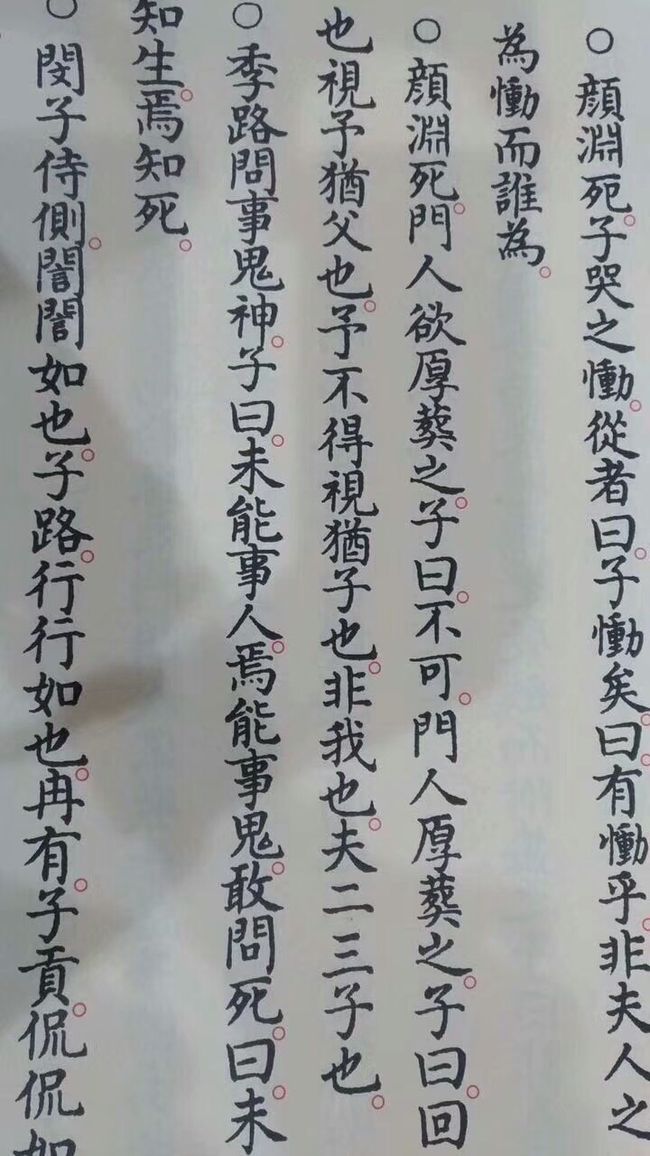 ○顏淵死。子哭之慟。從者曰。子慟矣。曰。有慟乎。非夫人之
為慟而誰為。
○顏淵死。門人欲厚葬之。子曰。不可。門人厚葬之。子曰。回
也視予猶父也。予不得視猶子也。非我也。夫二三子也。
○季路問事鬼神。子曰。未能事人。焉能事鬼。敢問死。曰。未
知生。焉知死。
○閔子侍側。誾誾如也。子路。行行如也。冉有。子貢。侃侃如